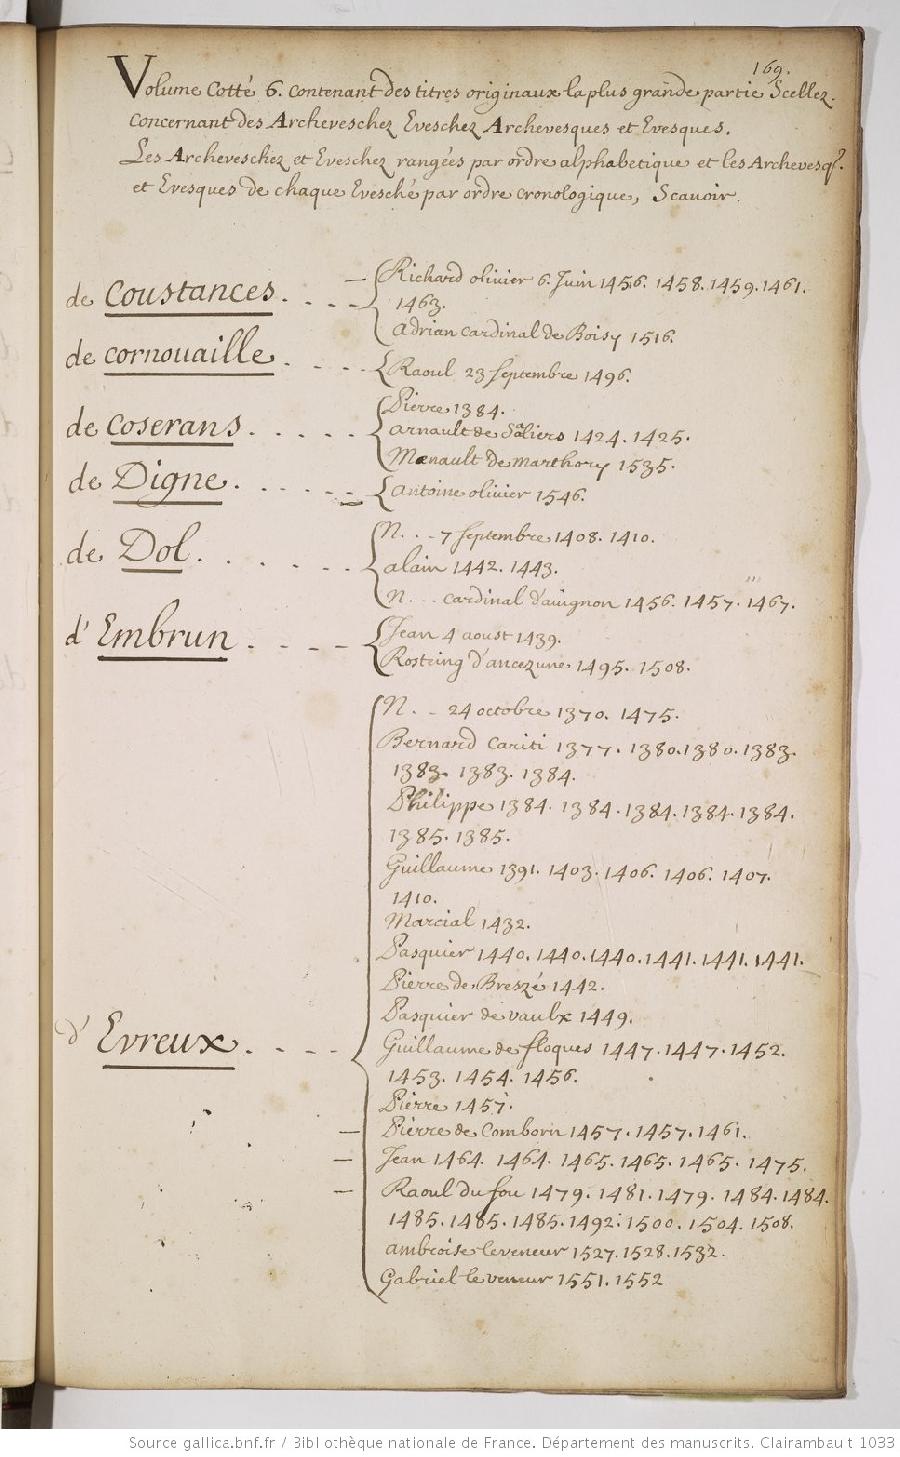 169.
Volume Cotté 6. contenant des titres originaux la plus grande partie Scellez.
concernant des Archeveschez Eveschez Archevesques et Evesques.
Les Archeveschéz et Eveschez rangées par ordre alphabetique et les Archevesq.^s
et Evesques de chaque Evesché par ordre cronologique, Scavoir
de Coustances. . . . .
Richard olivier 6. Juin 1456. 1458. 1459. 1461.
1463.
Adrian cardinal de Boisy 1516.
de cornouaille . . . . .
Raoul 23 septembre 1496.
de Coserans . . . . .
Pierre 1384.
arnault de Saliers 1424. 1425.
Menault de marthory 1535.
de Digne . . . . .
antoine olivier 1546.
de Dol. . . . . .
N. . . 7 septembre 1408. 1410.
alain 1442. 1443.
N. . . cardinal d'auignon 1456. 1457. 1467.
d'Embrun . - - - -
Jean 4 aoust 1439.
Rostring d'ancezune 1495. 1508.
d'Evreux . - - -
N. . - 24 octobre 1370. 1475.
Bernard Cariti 1377. 1380. 1380. 1383.
1383. 1383. 1384.
Philippe 1384. 1384. 1384. 1384. 1384.
1385. 1385.
Guillaume 1391. 1403. 1406. 1406. 1407.
1410.
Marcial 1432.
Pasquier 1440. 1440. 1440. 1441. 1441. 1441.
Pierre de Breszé 1442.
Pasquier de vaulx 1449.
Guillaume de floques 1447. 1447. 1452.
1453. 1454. 1456.
Pierre 1457.
Pierre de Comborn 1457. 1457. 1461.
Jean 1464. 1464. 1465. 1465. 1465. 1475.
Raoul du fou 1479. 1481. 1479. 1484. 1484.
1485. 1485. 1485. 1492. 1500. 1504. 1508.
ambroise leveneur 1527. 1528. 1532.
Gabriel le veneur 1551. 1552
Source gallica.bnf.fr / Bibliothèque nationale de France. Département des manuscrits. Clairambault 1033